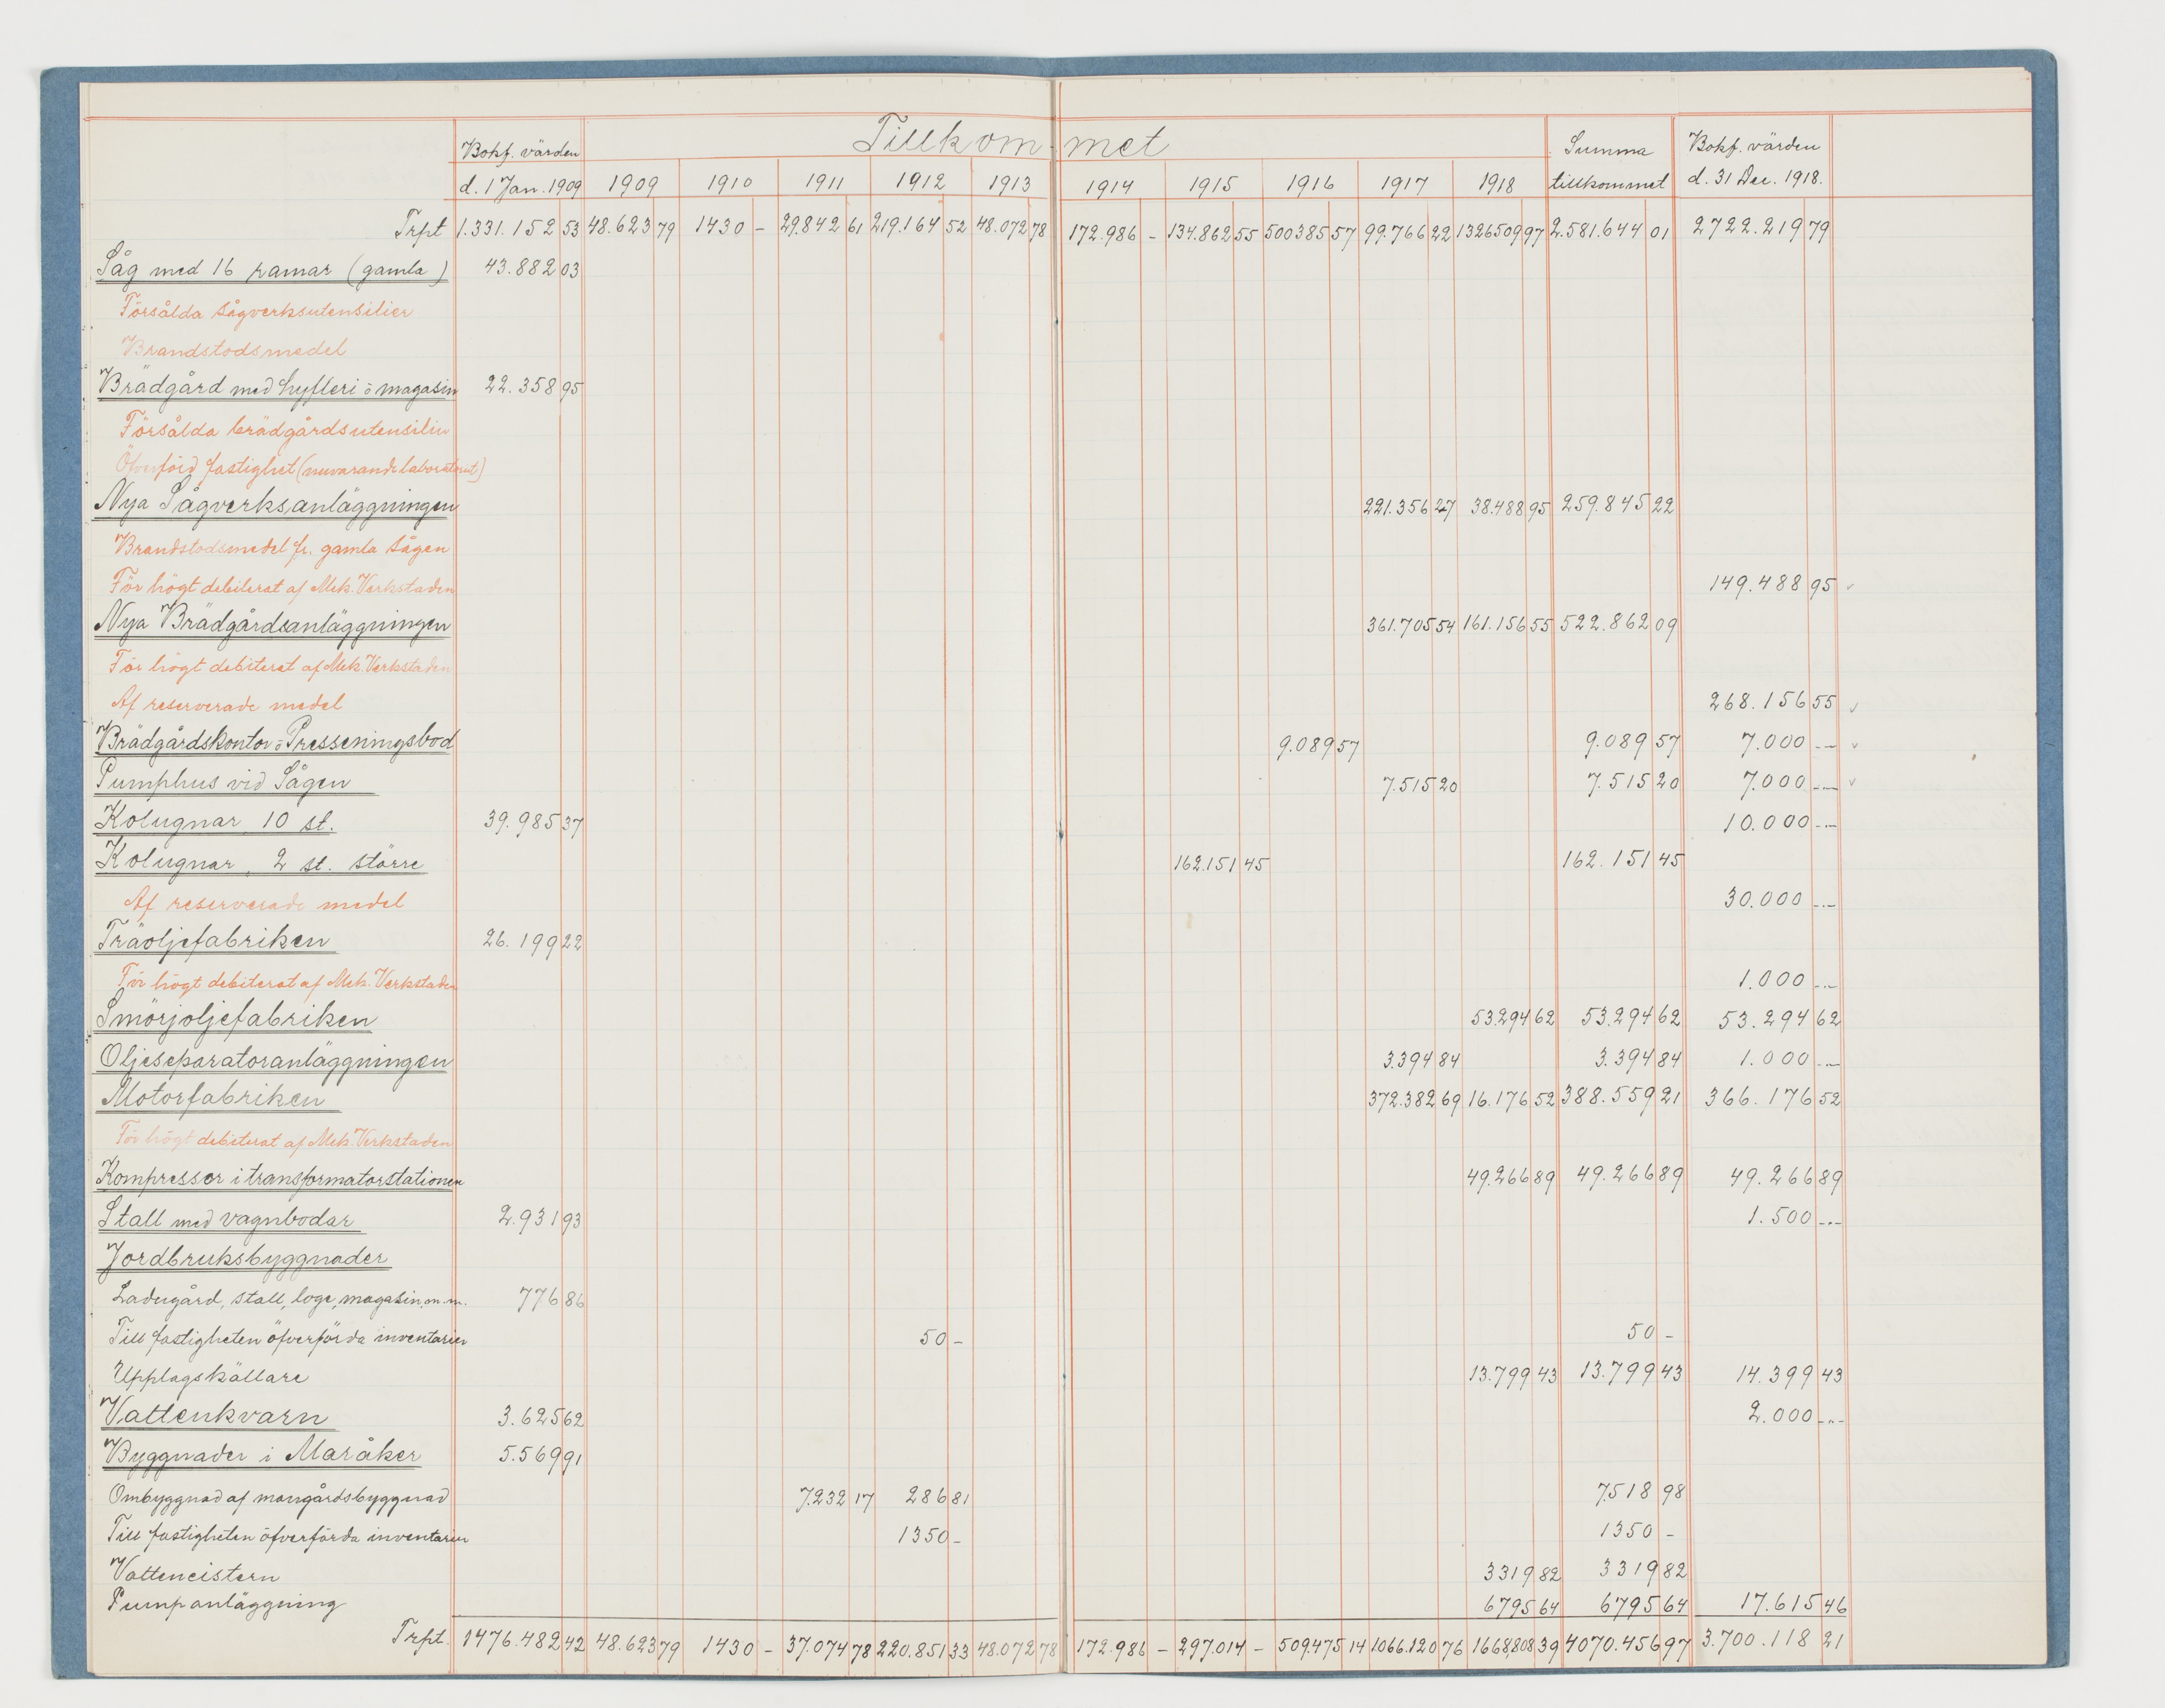 Tillkom- met
Bokf. värden d. 1 Jan. 1909 1909 1910 1911 1912 1913 1914 1915 1916 1917 1918 Summa tillkommet Bokf. värden d. 31 Dec. 1918.
Trpt 1.331.152 53 48.623 79 1430 - 29.842 61 219.164 52 48.072 78 172.986 - 134.862 55 500385 57 99.766 22 1326509 97 2.581.644 01 2722.219 79
Såg med 16 ramar (gamla) 43.882 03
Försålda sågverksutensilier
Brandstodsmedel
Brädgård med hyfleri o magasin 22.358 95
Försålda brädgårdsutensilier
Öfverförd fastighet (nuvarande laboratoriet)
Nya Sågverksanläggningen 221.356 27 38.488 95 259.845 22
Brandstodsmedel fr. gamla sågen
För högt debiterat af Mek. Verkstaden 149.488 95
Nya Brädgårdsanläggningen 361.705 54 161.156 55 522.862 09
För högt debiterat af Mek. Verkstaden
Af reserverade medel 268.156 55
Brädgårdskontor o Presseningsbod 9.089 57 9.089 57 7.000 -.-
Pumphus vid Sågen 7.515 20 7.515 20 7.000 -.-
Kolugnar, 10 st. 39.985 37 10.000 -.-
Kolugnar, 2 st. större 162.151 45 162.151 45
Af reserverade medel 30.000 -.-
Träoljefabriken 26.199 22
För högt debiterat af Mek. Verkstaden 1.000 -.-
Smörjoljefabriken 53.294 62 53.294 62 53.294 62
Oljeseparatoranläggningen 3.394 84 3.394 84 1.000 -.-
Motorfabriken 372.382 69 16.176 52 388.559 21 366.176 52
För högt debiterat af Mek. Verkstaden
Kompressor i transformatorstationen 49.266 89 49.266 89 49.266 89
Stall med vagnbodar 2.931 93 1.500 -.-
Jordbruksbyggnader
Ladugård, stall, loge, magasin, m.m. 776 86
Till fastigheten öfverförda inventarier 50 - 50 -
Upplagskällare 13.799 43 13.799 43 14.399 43
Vattenkvarn 3.625 62 2.000 -.-
Byggnader i Maråker 5.569 91
Ombyggnad af mangårdsbyggnad 7.232 17 286 81 7.518 98
Till fastigheten öfverförda inventarier 1350 - 1350 -
Vattencistern 3319 82 3319 82
Pumpanläggning 6795 64 6795 64 17.615 46
Trpt. 1476.482 42 48.623 79 1430 - 37.074 78 220.851 33 48.072 78 172.986 - 297.014 - 509.475 14 1066.120 76 1668,808 39 4070.456 97 3.700.118 21